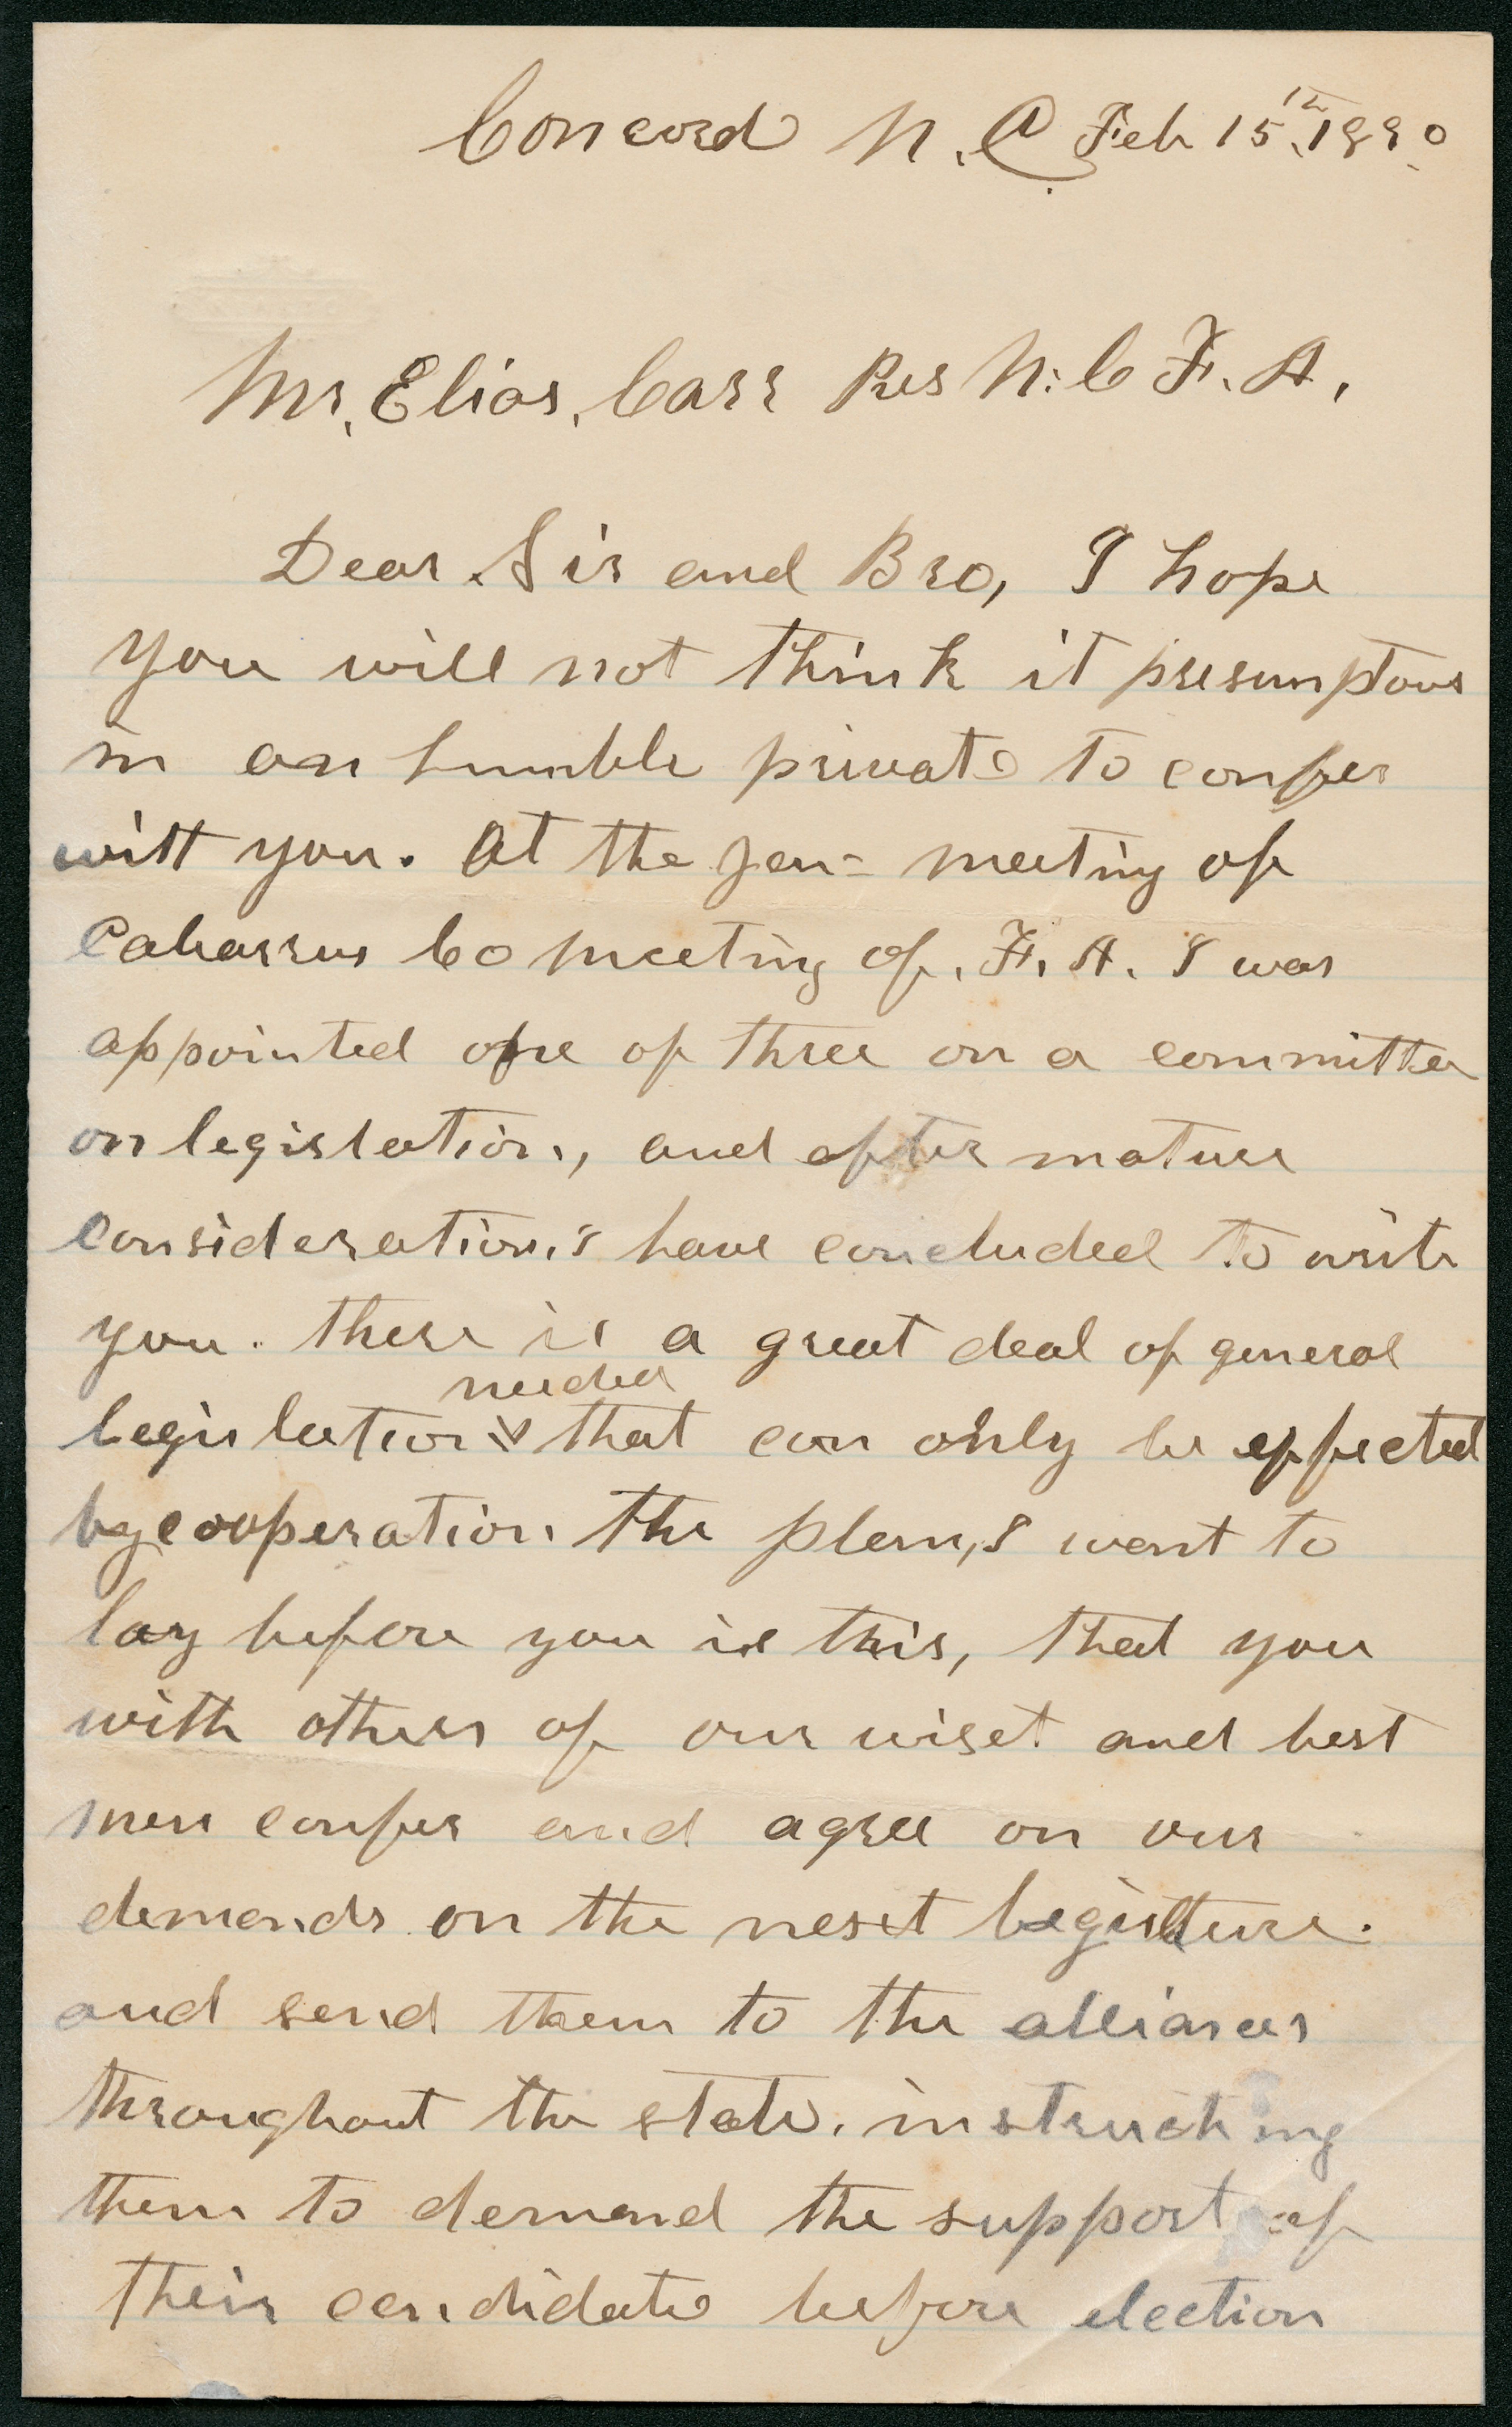 Concord N. C Feb 15th, 1890
Mr, Elias, Carr Pres N. C F. A.
Dear Sir and Bro, I hope
you will not think it presumptous
in an humble private to confer
witt you. At the Jan- meeting of
Cabarrus Co meeting of, F. A. I was
appointed one of three on a committee
on legislation, and after mature
consideration, I have concluded to write
you. there is a great deal of general
needed
legislation that can only be effected
by cooperation the plan, I want to
lay before you is this, that you
with others of our wiset and best
men confer and agree on our
demands on the next legislture.
and send them to the alliances
throughout the state, instructing
them to demand the support of
their candidate before election